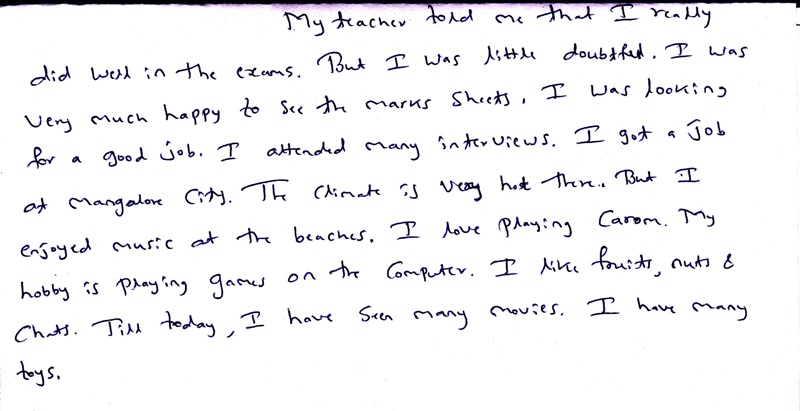 My teacher told me that I really
did well in the exams. But I was little doubtful. I was
very much happy to see the marks sheets. I was looking
for a good job. I attended many interviews. I got a job
at Mangalore City. The climate is very hot there.. But I
enjoyed music at the beaches. I love playing Carom. My
hobby is playing games on the computer. I like fruits, nuts &
Chats. Till today, I have seen many movies. I have many
toys.